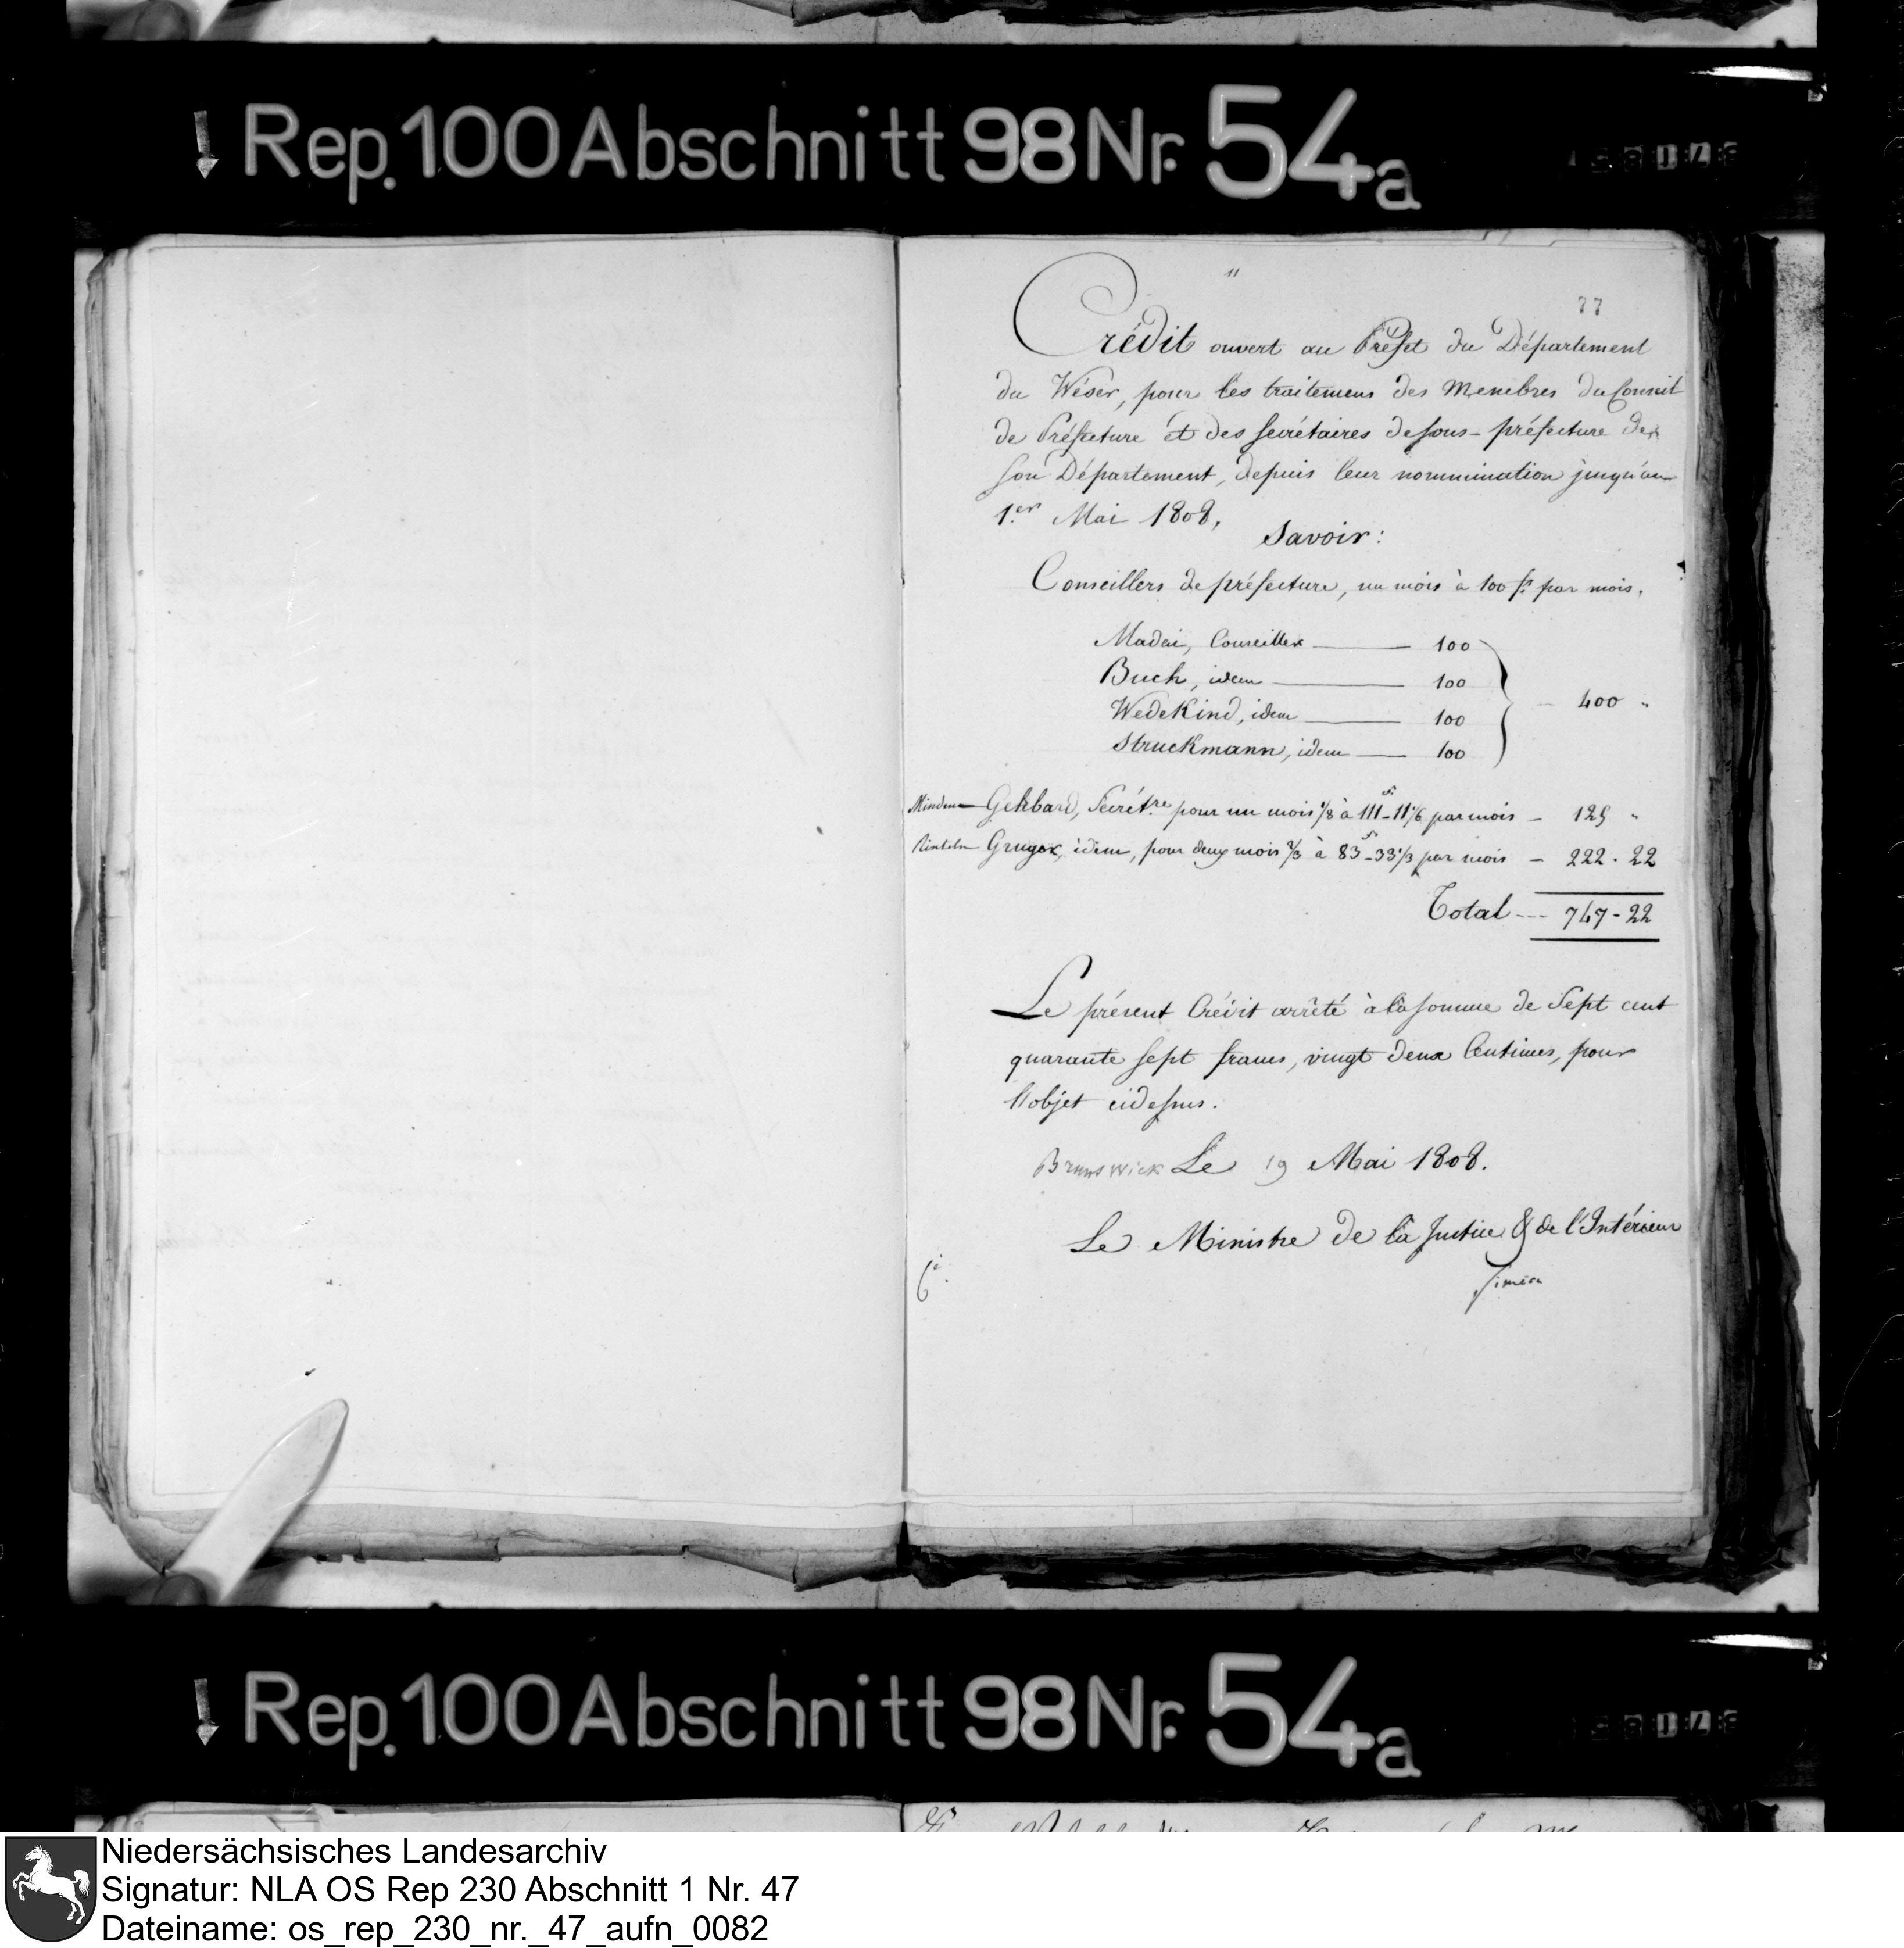 Rep. 100 Abschnitt 98 Nr. 54a
11
77
Crédit ouvert au Préfet du Département
du Wéser, pour les traitemens des Membres du Conseil
de Préfecture et des secrétaires de sous-préfecture de
son Département, depuis leur nommination jusqu'au
1.er Mai 1808,
Savoir:
Conseillers de préfecture, un mois à 100 fr. par mois.
Madai, Conseiller 100
Buch, idem 100
Wedekind, idem 100
Struckmann, idem 100
400 "
Minden Gehbard, Secrét.re pour un mois 1/8 à 111 - 11 1/6 par mois - 125 "
Rinteln Gruger, idem, pour deux mois 2/3 à 83 - 33 1/3 par mois - 222 . 22
Total --- 747 - 22
Le présent Crédit arrêté à la somme de Sept cent
quarante sept francs, vingt deux Centimes, pour
l'objet cidessus.
Brunswick Le 19 Mai 1808.
Le Ministre de la Justice & de l'Intérieur
Siméon
Rep. 100 Abschnitt 98 Nr. 54a
Niedersächsisches Landesarchiv
Signatur: NLA OS Rep 230 Abschnitt 1 Nr. 47
Dateiname: os_rep_230_nr._47_aufn_0082